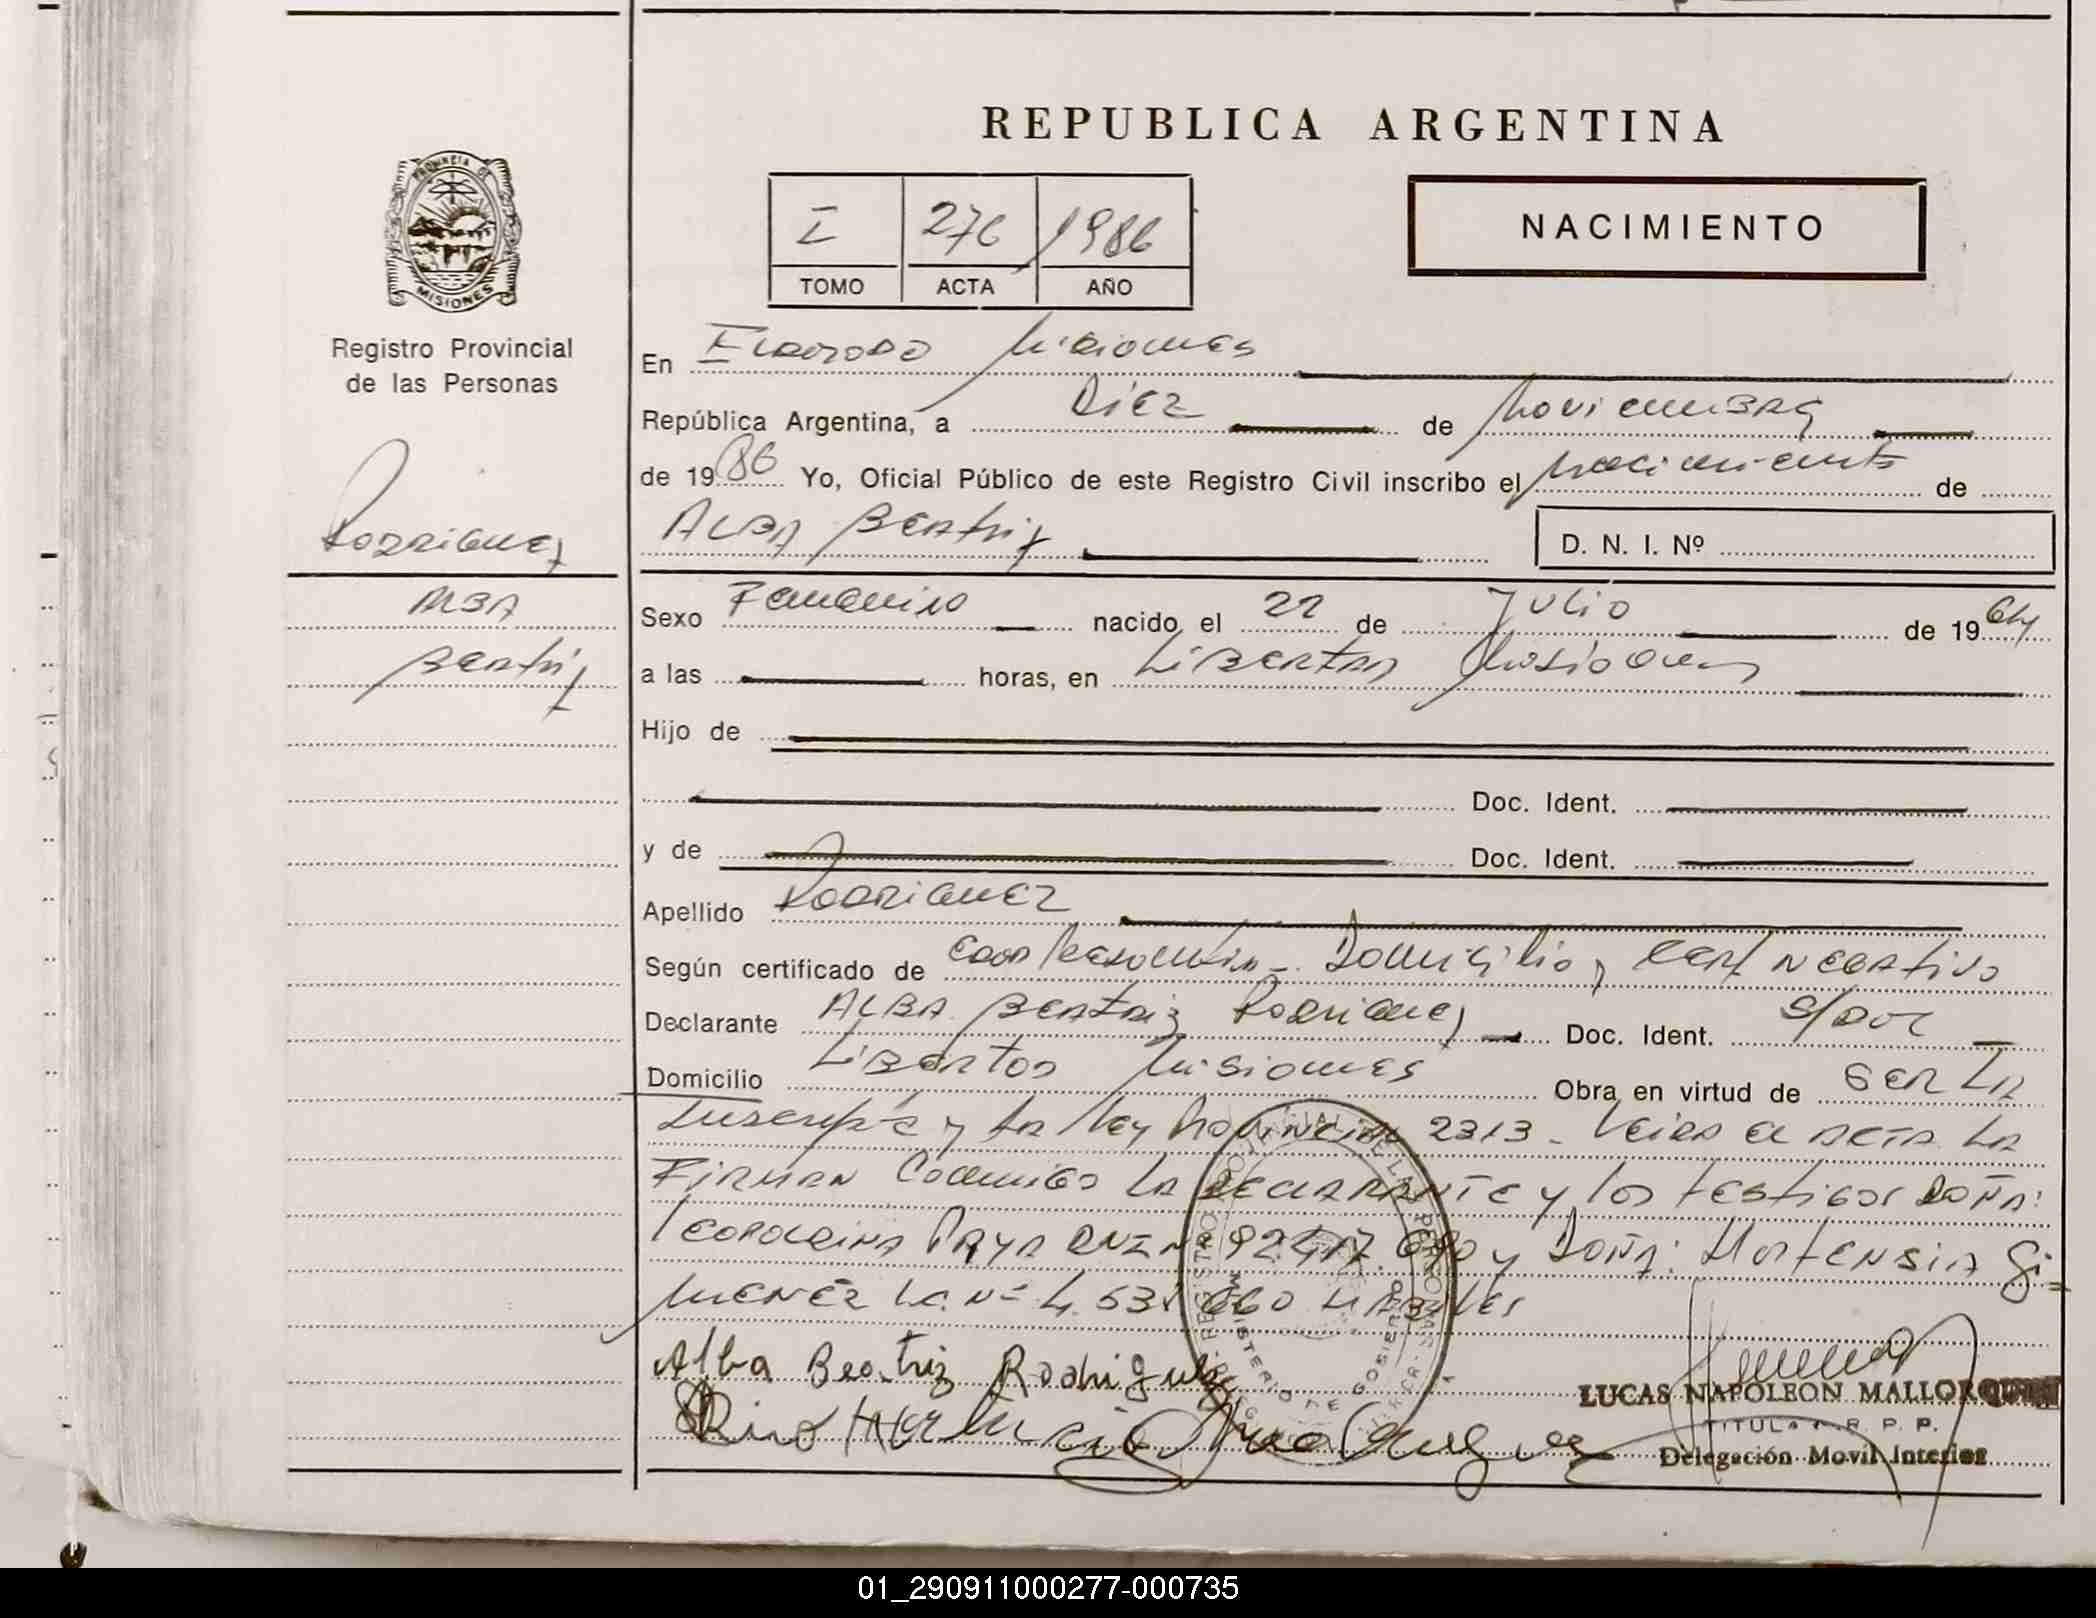 REPUBLICA ARGENTINA
PROVINCIA DE
MISIONES
Registro Provincial
de las Personas
I 276 1986
TOMO ACTA AÑO
NACIMIENTO
En Eldorado Misiones
República Argentina, a Diez de Noviembre
de 1986 Yo, Oficial Público de este Registro Civil inscribo el nacimiento de
Alba Beatriz D. N. I. Nº
Rodriguez
Alba
Beatriz
Sexo Femenino nacido el 22 de Julio de 1964
a las horas, en Libertad Misiones
Hijo de
Doc. Ident.
y de Doc. Ident.
Apellido Rodriguez
Según certificado de Domicilio, Cert Negativo
Declarante Alba Beatriz Rodriguez Doc. Ident. S/Doc
Domicilio Libertad Misiones Obra en virtud de Ser La
Inscripta y La Ley Provincial 2313. Leida el acta La
Firman Conmigo La Declarante y los testigos Doña:
Leopoldina y Doña: Hortensia Gi=
menez L.C. Nº 4.53 660 Habiles
Alba Beatriz Rodriguez
LUCAS NAPOLEON
TITULAR R. P. P.
Delegación Movil Interior
REGISTRO PROVINCIAL DE LAS PERSONAS
MINISTERIO DE GOBIERNO
01_290911000277-000735